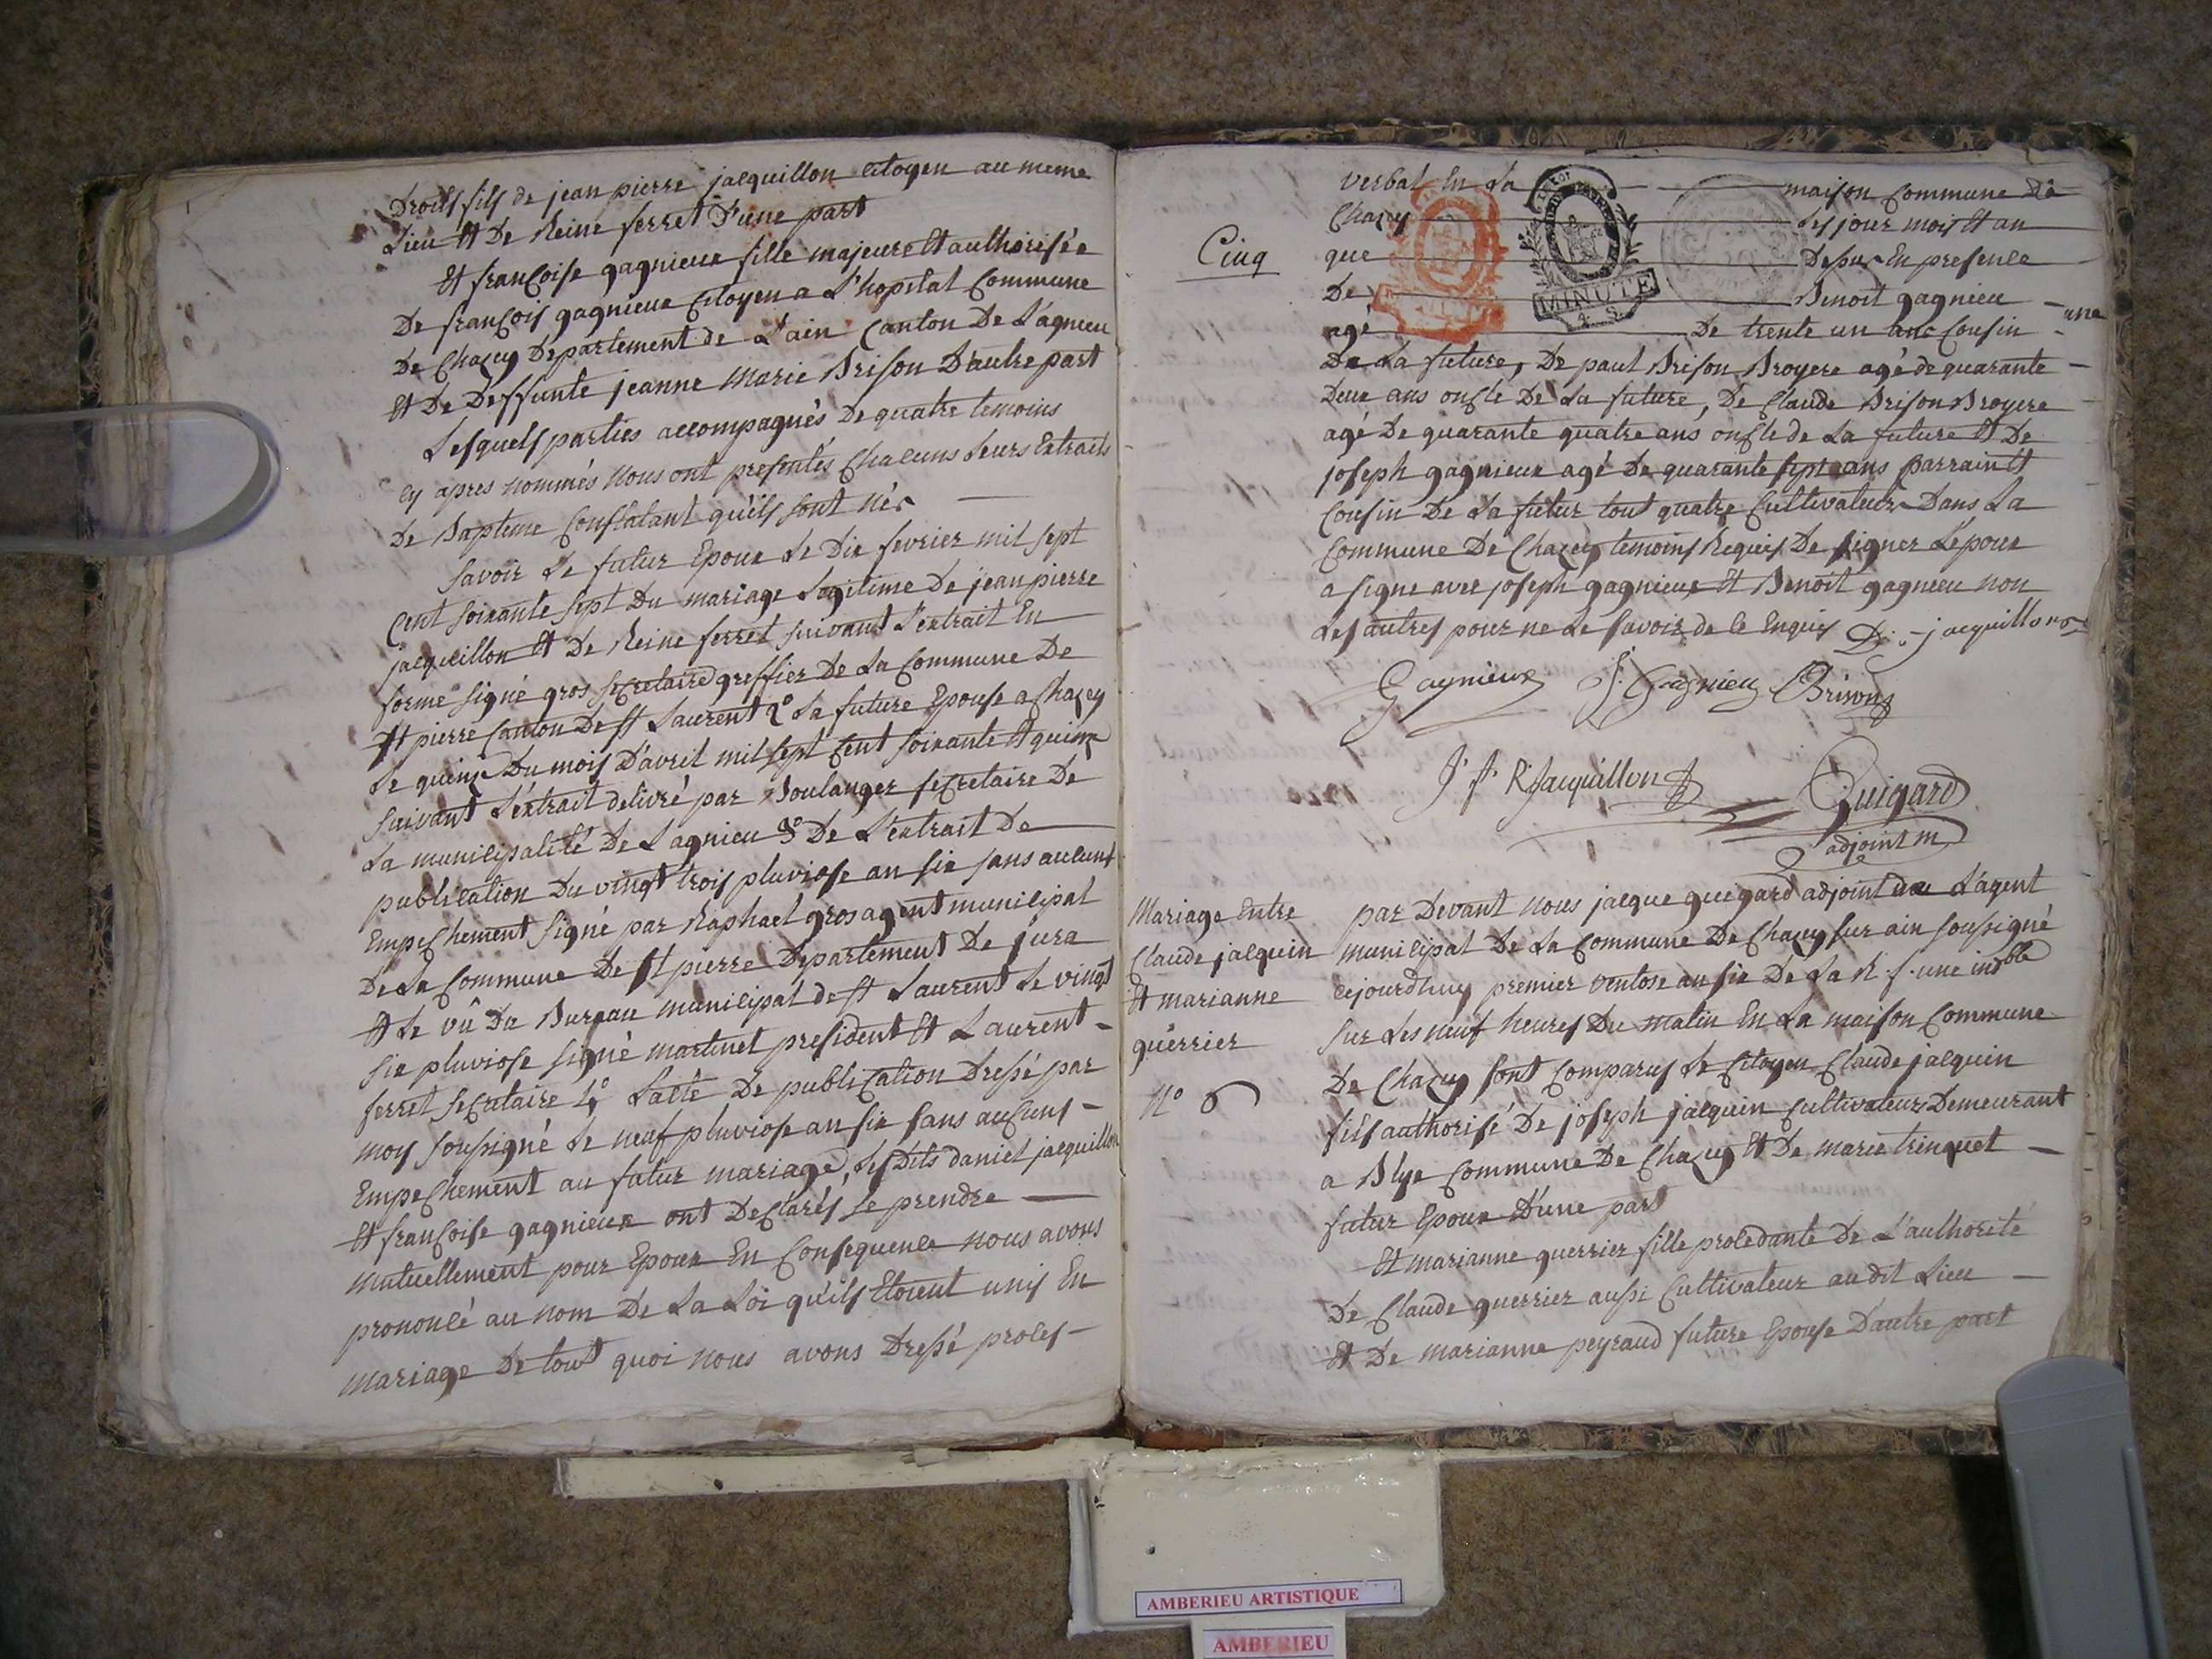 Droits fils de jean pierre jacquillon citoyen au meme
Lieu et De Reine ferret D'une part
Et francoise gagnieux fille majeure et authorisée
De francois gagnieux citoyen a L'hopital Commune
De Chazey Departement de L'ain Canton De Lagnieu
Et De Deffunte jeanne Marie Brison D'autre part
Lesquels parties accompagnés De quatre temoins
cy apres nommés Nous ont presentés chacuns Leurs Extraits
De Bapteme Constatant qu'ils sont nés
Savoir Le futur Epoux Le Dix fevrier mil sept
Cent soixante sept Du mariage Legitime De jean pierre
jacquillon et De Reine ferret suivant L'extrait En
forme signé gros secretaire greffier De La Commune De
St pierre Canton De St Laurent 2° La future Epouse a Chazey
Le quinze Du mois D'avril mil sept Cent soixante et quinze
suivant L'extrait delivré par Boulanger secretaire De
La municipalité De Lagnieu 3° De L'extrait De
publication Du vingt trois pluviose an six sans aucun
Empechement signé par Raphael gros agent municipal
De La Commune De St pierre Departement De jura
et Le vû Du Bureau municipal de St Laurent Le vingt
six pluviose signé martinet president et Laurent
ferret secretaire 4° L'acte De publication Dressé par
moy soussigné Le neuf pluviose an six sans aucuns
Empechement au futur mariage, Les Dits daniel jacquillon
et francoise gagnieux ont Declarés se prendre
mutuellement pour Epoux En Consequence nous avons
prononcé au nom De La Loi qu'ils Etoient unis En
mariage De tout quoi nous avons Dressé proces
Cinq
verbal En La maison Commune De
Chazey Les jour mois et an
que Dessus En presence
De Benoit gagnieu
agé De trente un ans Cousin
De La future, De paul Brison Broyere agé de quarante
Deux ans oncle De La future, De Claude Brison Broyere
agé De quarante quatre ans oncle de La future et De
joseph gagnieux agé De quarante sept ans parrain et
Cousin De La futur tout quatre Cultivateurs Dans La
Commune De Chazey temoins Requis De signer L'epoux
a signe avec joseph gagnieux et Benoit gagnieu non
Les autres pour ne Le savoir de ce Enquis D. jacquillon
Gagnieux J. Gagnieu Brison
J f R Jacquillon Guigard
adjoint m
Mariage Entre
Claude jacquin
et marianne
guerrier
N° 6
par Devant nous jacque guigard adjoint de L'agent
municipal De La Commune De Chazey sur ain soussigné
cejourdhuy premier ventose an six De La R. f. une indble
sur Les neuf heures Du matin En La maison Commune
De Chazey sont Comparus Le Citoyen Claude jacquin
fils authorisé De joseph jacquin cultivateur Demeurant
a Blye Commune De Chazey et De marie trinquet
futur Epoux D'une part
Et marianne guerrier fille procedante De L'authorité
De Claude guerrier aussi Cultivateur au dit Lieu
et De marianne peyraud future Epouse D'autre part
MINUTE
AMBERIEU ARTISTIQUE
AMBERIEU